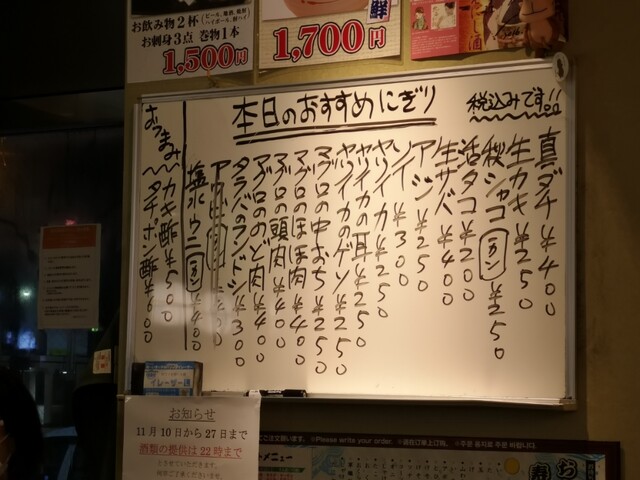 お飲み物2杯
お刺身3点 巻物1本
1,500円
1,700円
鮮
本日のおすすめにぎり
税込みです!!
真ダチ ¥400
生カキ ¥250
秋シャコ(一カン) ¥250
活タコ ¥200
生サバ ¥400
アジ ¥250
ソイ ¥300
ヤリイカ ¥250
ヤリイカの耳 ¥250
ヤリイカのゲソ ¥250
マグロの中おち ¥250
マグロのほほ肉 ¥400
マグロの頭肉 ¥400
マグロののど肉 ¥400
タラバのフンドシ ¥300
塩水ウニ(一カン) ¥400
おつまみ
カキ酢 ¥500
タチポン酢 ¥600
イレーザー
お知らせ
11月10日から27日まで
酒類の提供は22時まで
とさせていただきます。
※Please write your order.
メニュー